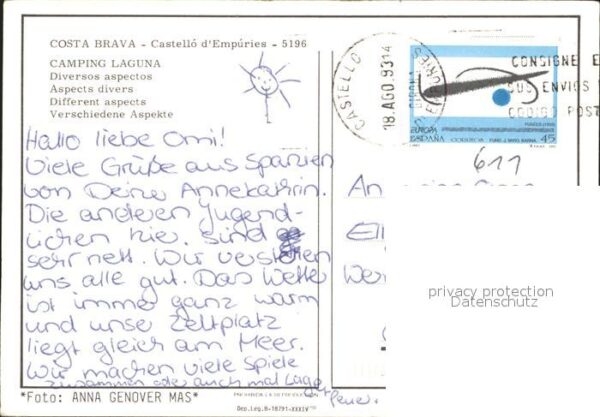 COSTA BRAVA - Castelló d'Empúries - 5196
CAMPING LAGUNA
Diversos aspectos
Aspects divers
Different aspects
Verschiedene Aspekte
Hallo liebe Omi!
Viele Grüße aus Spanien
von Deine Annekathrin.
Die anderen Jugend-
lichen hier sind
sehr nett. Wir verstehen
uns alle gut. Das Wetter
ist immer ganz warm
und unser Zeltplatz
liegt gleich am Meer.
Wir machen viele Spiele
zusammen oder auch mal Lager
feuer.
*Foto: ANNA GENOVER MAS*
Dep.Leg.B-18791-XXXIV
CASTELLO
18.AGO.93-14
EMPURIES
CONSIGNE E
SUS ENVIOS
CODIGO POST
EUROPA
ESPAÑA
CORREOS
45
611
An
privacy protection
Datenschutz